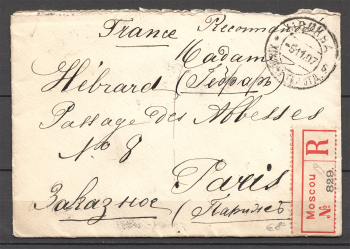 France Recommandé
Madame
Hébrard (Гебраръ)
Passage des Abbesses
No 8
Paris
Заказное (Парижъ
МОСКВА
-5.11.07
R
Moscou
№ 829.